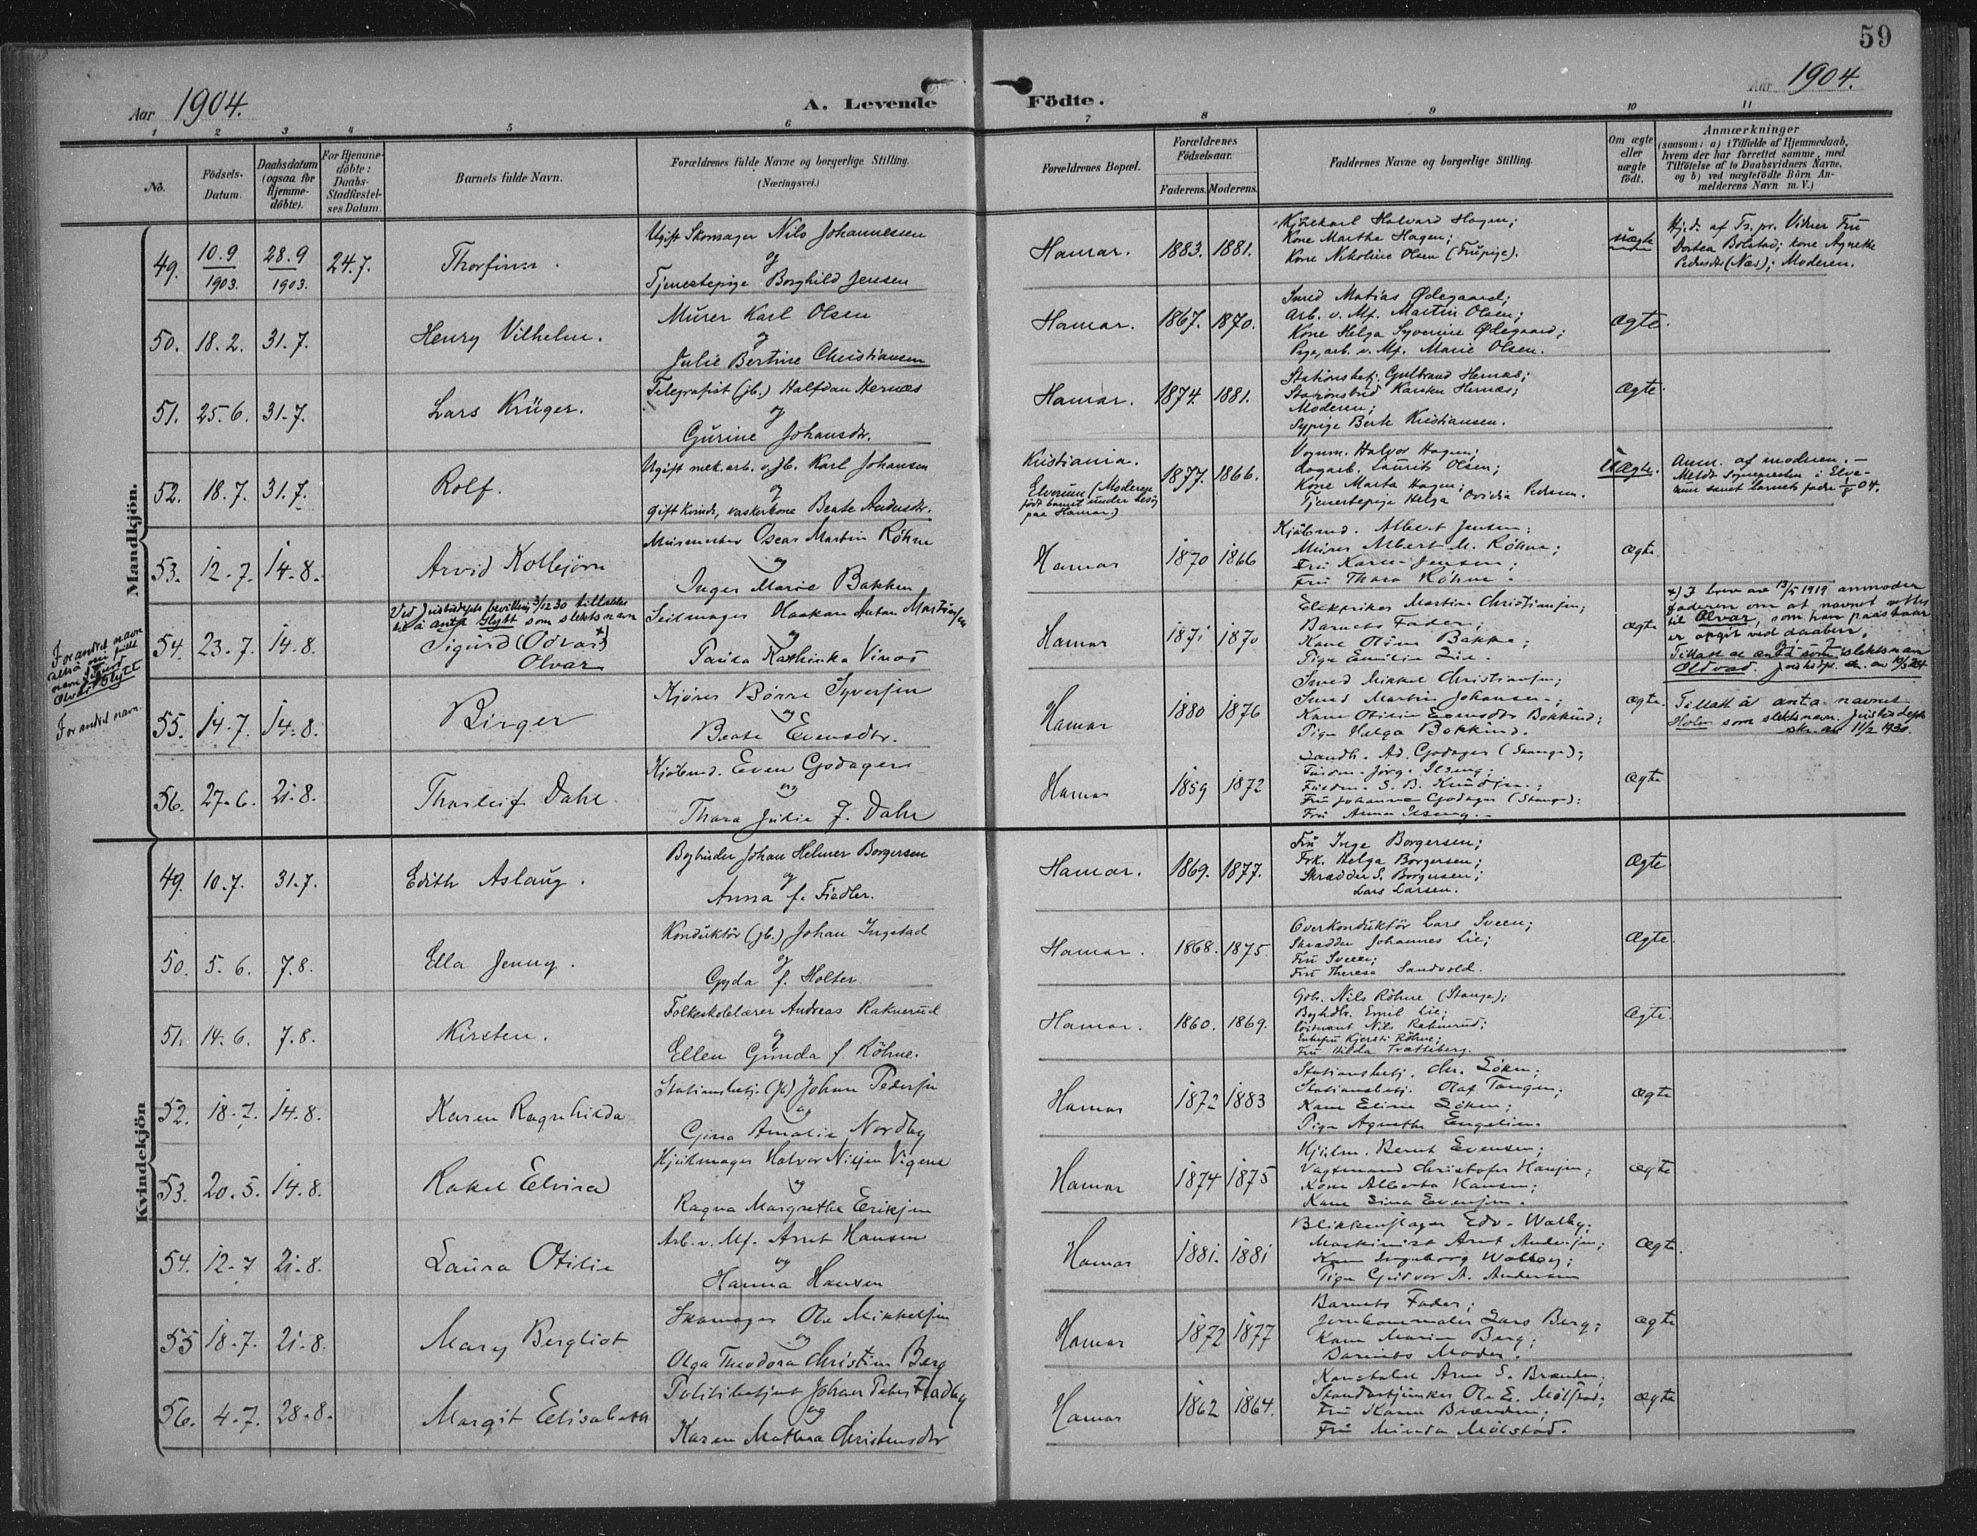 59
Aar 1904.
A. Levende Födte.
Aar 1904.
1 2 3 4 5 6 7 8 9 10 11
No.
Födsels-
Datum.
Daabsdatum
(ogsaa for
Hjemme-
døbte).
For Hjemme-
döbte:
Daabs-
Stadfæstel-
ses Datum.
Barnets fulde Navn.
Forældrenes fulde Navne og borgerlige Stilling.
(Næringsvei.)
Forældrenes Bopæl.
Forældrenes
Födselsaar.
Faderens. Moderens.
Faddernes Navne og borgerlige Stilling.
Om ægte
eller
uægte
födt.
Anmærkninger
(saasom: a) i Tilfælde af Hjemmedaab,
hvem der har forrettet samme, med
Tilføielse af to Daabsvidners Navne,
og b) ved uægtefödte Börn An-
melderens Navn m. V.)
Mandkjön.
49. 10.9 1903. 28.9 1903. 24.7. Thorfinn.
Ugift Skomager Nils Johannesen
og
Tjenestepige Borghild Jensen
Hamar. 1883. 1881.
Kjørekarl Halvard Hagen;
Kone Marthe Hagen;
Kone Nikoline Olsen (Früpige).
uægte
Hj.d. af Ts. pr. Vidner Frü
Dortea Bolstad; kone Agnethe
Pedersdtr (Næs); Moderen.
50. 18.2. 31.7. Henry Vilhelm.
Mürer Karl Olsen
og
Julie Bertine Christiansen
Hamar. 1867. 1870.
Smed Matias Ødegaard;
Arb. v. Mf. Martin Olsen;
Kone Helga Syverine Ødegaard;
Pige, arb. v. Mf. Marie Olsen.
ægte.
51. 25.6. 31.7. Lars Krüger.
Telegrafist (jb.) Halfdan Hernæs
og
Gürine Johansdtr.
Hamar. 1874. 1881.
Stationsbetj. Gulbrand Hernæs;
Moderen;
Sypige Berte Kristiansen.
ægte.
52. 18.7. 31.7. Rolf.
Ugift mek. arb. v. jb. Karl Johansen
og
gift kvinde, vaskerkone Beate Andersdtr.
Kristiania.
Elverum (Moderen
født barnet under besøg
paa Hamar.)
1877. 1866.
Vognm. Halvor Hagen;
Lagarb. Laurits Olsen;
Kone Marta Hagen;
Tjenestepige Helga Ovidia Pedersen.
üægte.
Anm. af moderen. —
Meldt Sognepresten i Elve-
rum samt barnets fader 1/8 04.
53. 12.7. 14.8. Arvid Kolbjørn
Mürmester Oscar Martin Røhne
og
Inger Marie Bakken
Hamar 1870 1866
Kjøbmd. Albert Jensen;
Mürer Albert M. Röhne;
Frü Karen Jensen;
Frü Thora Röhne.
ægte
Forandret navn
54. 23.7. 14.8.
Ved Justisdepts bevilling 3/12 30 tillates
til å anta Slyht som slektsnavn
Sigürd (Odvar) x)
Olvar
Seilmager Haakon Anton Martinsen
og
Paula Kathinka Vinos
Hamar 1871 1870
Elektriker Martin Christiansen;
Barnets Fader;
Kone Oline Bakke;
Pige Emilie Lie.
ægte
x) I brev av 13/5 1919 anmoder
faderen om at navnet rettes
til Olvar, som han paastaar
er opgit ved daaben.
Tillatt at anta som slektsnavn
Forandret navn.
55. 14.7. 14.8. Birger
Kjører Börre Syversen
og
Beate Evensdtr.
Hamar 1880 1876
Smed Mikkel Christiansen;
Smed Martin Johansen;
Kone Otilie Evensdtr Bekkind;
Pige Helga Bekkind.
ægte.
Tillatt å anta navnet
Holm som slektsnavn. Justisdepts
skr. av 11/2 1930.
56. 27.6. 21.8. Thorleif Dahl.
Kjøbmd. Even Gjødager
og
Thora Julie f. Dahl
Hamar 1859 1872
Landh. Ad. Gjødager (Stange);
Frü Johanne Gjødager (Stange);
Frü Anna Ilseng.
ægte
Kvindekjön
49. 10.7. 31.7. Edith Aslaug.
Bogbinder Johan Helmer Borgersen
og
Anna f. Fiedler.
Hamar. 1869. 1877.
Frü Inge Borgersen;
Frk. Helga Borgersen;
Skrædder S. Borgersen;
Lars Larsen.
Ægte
50. 5.6. 7.8. Ella Jenny.
Kondüktör (jb.) Johan Ingstad
og
Gyda f. Holter
Hamar. 1868. 1875.
Overkondüktör Lars Sveen;
Skrædder Johannes Lie;
Frü Sveen;
Frü Therese Sandvold.
Ægte.
51. 14.6. 7.8. Kirsten.
Folkeskolelærer Andreas Raknerüd
og
Ellen Günda f. Röhne.
Hamar. 1860. 1869.
Gbr. Nils Röhne (Stange);
Boghdlr. Emil Lie;
Löitnant Nils Raknerüd;
Enkefrü Kjersti Röhne;
Frü Hilda Trætteberg.
Ægte.
52. 18.7. 14.8. Karen Ragnhilda
Stationsbetj. (jb) Johan Pedersen
og
Gina Amalie Nordby
Hamar 1872 1883
Stationsbetj. Chr. Löken;
Stationsbetj. Olaf Tangen;
Kone Eline Löken;
Pige Agnethe Engelien.
ægte
53. 20.5. 14.8. Rakel Elvira
Hjülmager Halvor Nilsen Vigene
og
Ragna Margrethe Eriksen
Hamar 1874 1875
Hjülm. Bernt Evensen;
Vagtmand Christofer Hansen;
Kone Alberta Hansen;
Kone Lina Evensen.
ægte
54. 12.7 21.8. Laura Otilie
Arb. v. Mf. Arnt Hansen
og
Hanna Hansen
Hamar 1881. 1881
Blikkenslager Edv. Walby;
Maskinist Arnt Andersen;
Kone Ingeborg Walby;
Pige Gudvor A. Andersen
ægte.
55 18.7. 21.8. Mary Bergliot
Skomager Ole Mikkelsen
og
Olga Theodora Christine Berg
Hamar 1872 1877
Barnets Fader;
Jernbanemaler Lars Berg;
Kone Marie Berg;
Barnets Moder.
ægte
56. 4.7. 28.8. Margit Elisabeth
Politibetjent Johan Peter Fladby
og
Karen Mathea Christensdtr
Hamar 1862 1864.
Konstabel Arne S. Brænden;
Standartjunker Ole E. Mölstad;
Frü Karen Brænden;
Frü Minda Mölstad.
ægte